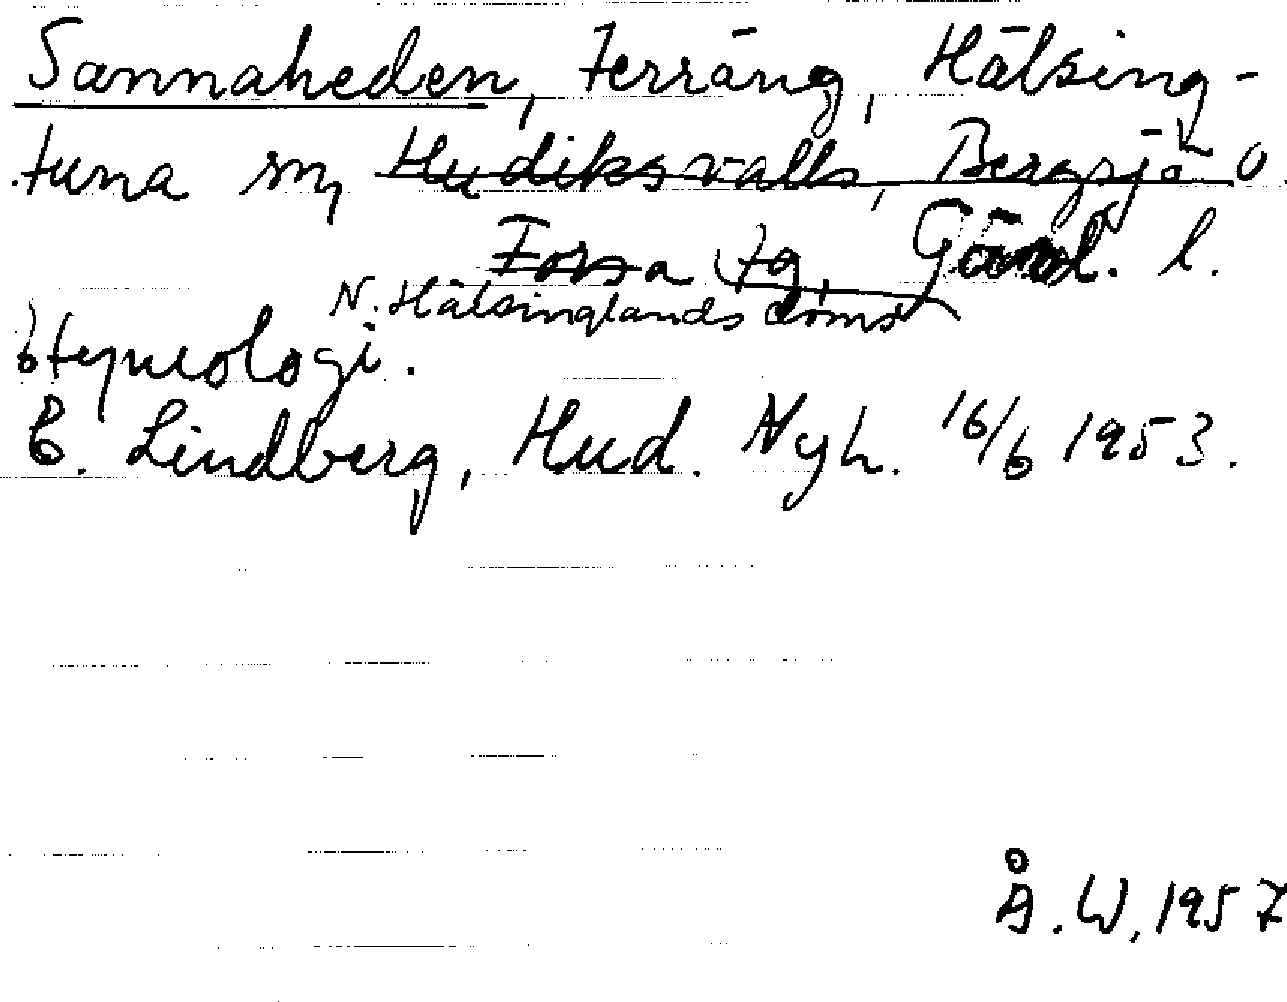 Sannaheden, Terräng, Hälsing-
tuna sn, Hudiksvalls, Bergsjö o
Forsa tg, Gävl. l.
N. Hälsinglands doms
Etymologi.
E. Lindberg, Hud. Nyh. 16/6 1953.
Å.W, 1957